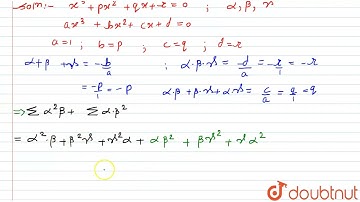 Soln:- x³ + px² + qx + r = 0 ; α, β, γ
ax³ + bx² + cx + d = 0
a = 1 ; b = p ; c = q ; d = r
α + β + γ = -b/a ; α·β·γ = -d/a = -r/1 = -r
= -p/1 = -p α·β + β·γ + αγ = c/a = q/1 = q
⇒ Σα²β + Σα·β²
= α²·β + β²γ + γ²α + αβ² + βγ² + γα²
doubtnut